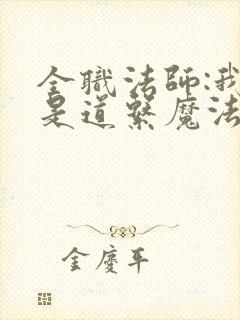 全職法師:我
是道繫魔法
金慶平